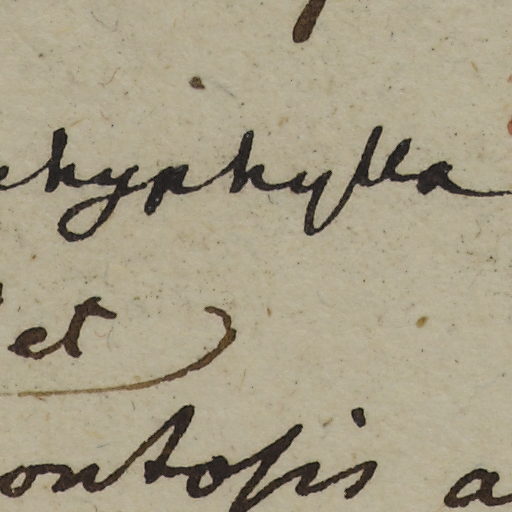 chyphylla
et
ontosis a